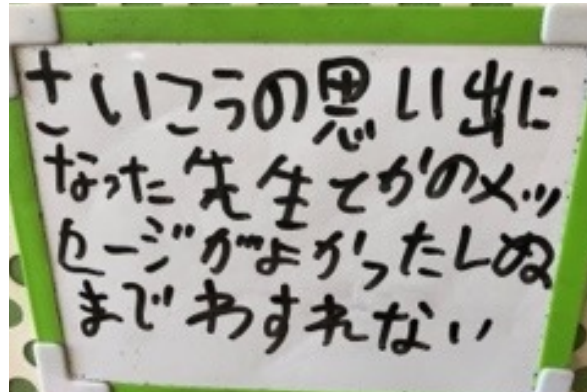 さいこうの思い出に
なった先生てがのメッ
セージがよかったしぬ
までわすれない